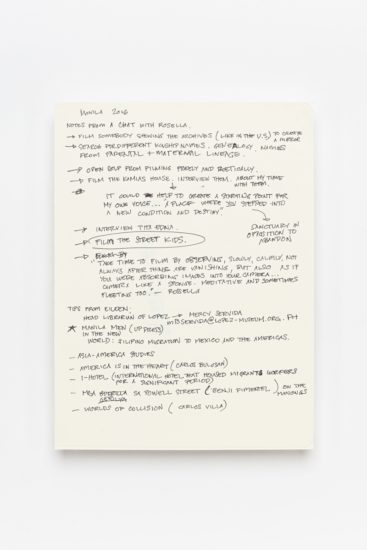 MANILA 2016
NOTES FROM A CHAT WITH ROSELLA.
→ FILM SOMEBODY SHOWING THE ARCHIVES (LIKE IN THE U.S) TO CREATE A MIRROR
→ SEARCH FOR DIFFERENT KINSHIP NAMES, GENEALOGY, NAMES
FROM PATERNAL + MATERNAL LINEAGE.
→ OPEN SELF FROM FILMING FREELY AND POETICALLY.
→ FILM THE KAMIAS HOUSE. INTERVIEW THEM ABOUT MY TIME
WITH THEM.
IT COULD HELP TO CREATE A STARTING POINT FOR
MY OWN VOICE... A PLACE WHERE YOU STEPPED INTO
A NEW CONDITION AND DESTINY."
→ INTERVIEW TITA EDNA.
SANCTUARY IN
OPPOSITION TO
ABANDON
→ FILM THE STREET KIDS.
"TAKE TIME TO FILM BY OBSERVING, SLOWLY, CALMLY, NOT
ALWAYS AFTER THINGS ARE VANISHING, BUT ALSO AS IF
YOU WERE ABSORBING IMAGES INTO YOUR CAMERA...
CAMERA LIKE A SPONGE. MEDITATIVE AND SOMETIMES
FLEETING TOO." — ROSELLA
TIPS FROM EILEEN:
HEAD LIBRARIAN OF LOPEZ → MERCY SERVIDA
MBSERVIDA@LOPEZ-MUSEUM.ORG.PH
★ MANILA MEN (UP PRESS)
IN THE NEW
WORLD: FILIPINO MIGRATION TO MEXICO AND THE AMERICAS.
— ASIA-AMERICA STUDIES
— AMERICA IS IN THE HEART (CARLOS BULOSAN)
— I-HOTEL (INTERNATIONAL HOTEL THAT HOUSED MIGRANT WORKERS
FOR A SIGNIFICANT PERIOD)
— MGA SA POWELL STREET (BENJI PIMENTEL) ON THE
MANONGS
— WORLDS OF COLLISION (CARLOS VILLA)